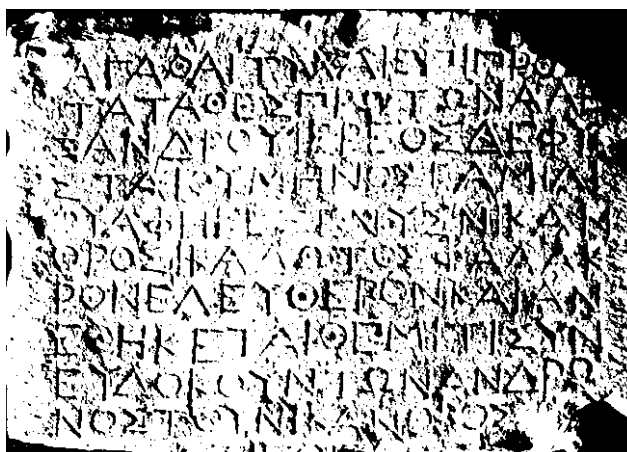 ΑΓΑΘΑΙΤΥΧΑΙΕΠΙΠΡΟ
ΤΑΤΑΘΕΣΠΡΩΤΩΝΑΛΕ
ΞΑΝΔΡΟΥΙΕΡΕΟΣΔΕΦΙ
ΣΤΑΤΟΥΜΗΝΟΣΓΑΜΙΛΙ
ΝΙΚΑΝ
ΟΡΟΣΙΚΑΔΩΤΟΣΦΑΛΑΚ
ΡΟΝΕΛΕΥΘΕΡΟΝΚΑΙΑΝ
ΕΘΗΚΕΤΑΙΘΕΜΙΤΙΣΥΝ
ΕΥΔΟΚΟΥΝΤΩΝΑΝΔΡΩ
ΝΟΣΤΟΥΝΙΚΑΝΟΡΟΣ